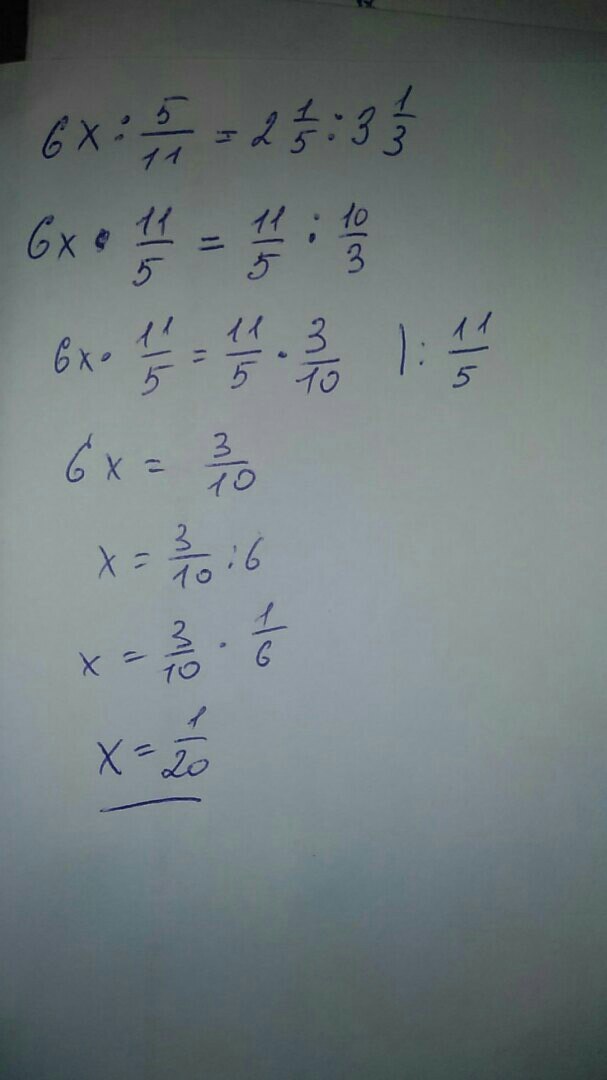 6x : 5/11 = 2 1/5 : 3 1/3
6x · 11/5 = 11/5 : 10/3
6x · 11/5 = 11/5 · 3/10 | : 11/5
6x = 3/10
x = 3/10 : 6
x = 3/10 · 1/6
x = 1/20